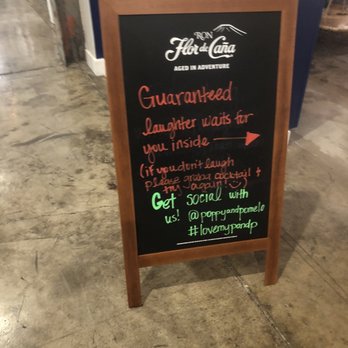 RON
Flor de Caña
AGED IN ADVENTURE
Guaranteed
laughter waits for
you inside
(if you don't laugh
please grab a cocktail +
try again!
Get social with
us! @poppyandpomelo
#lovemypandp